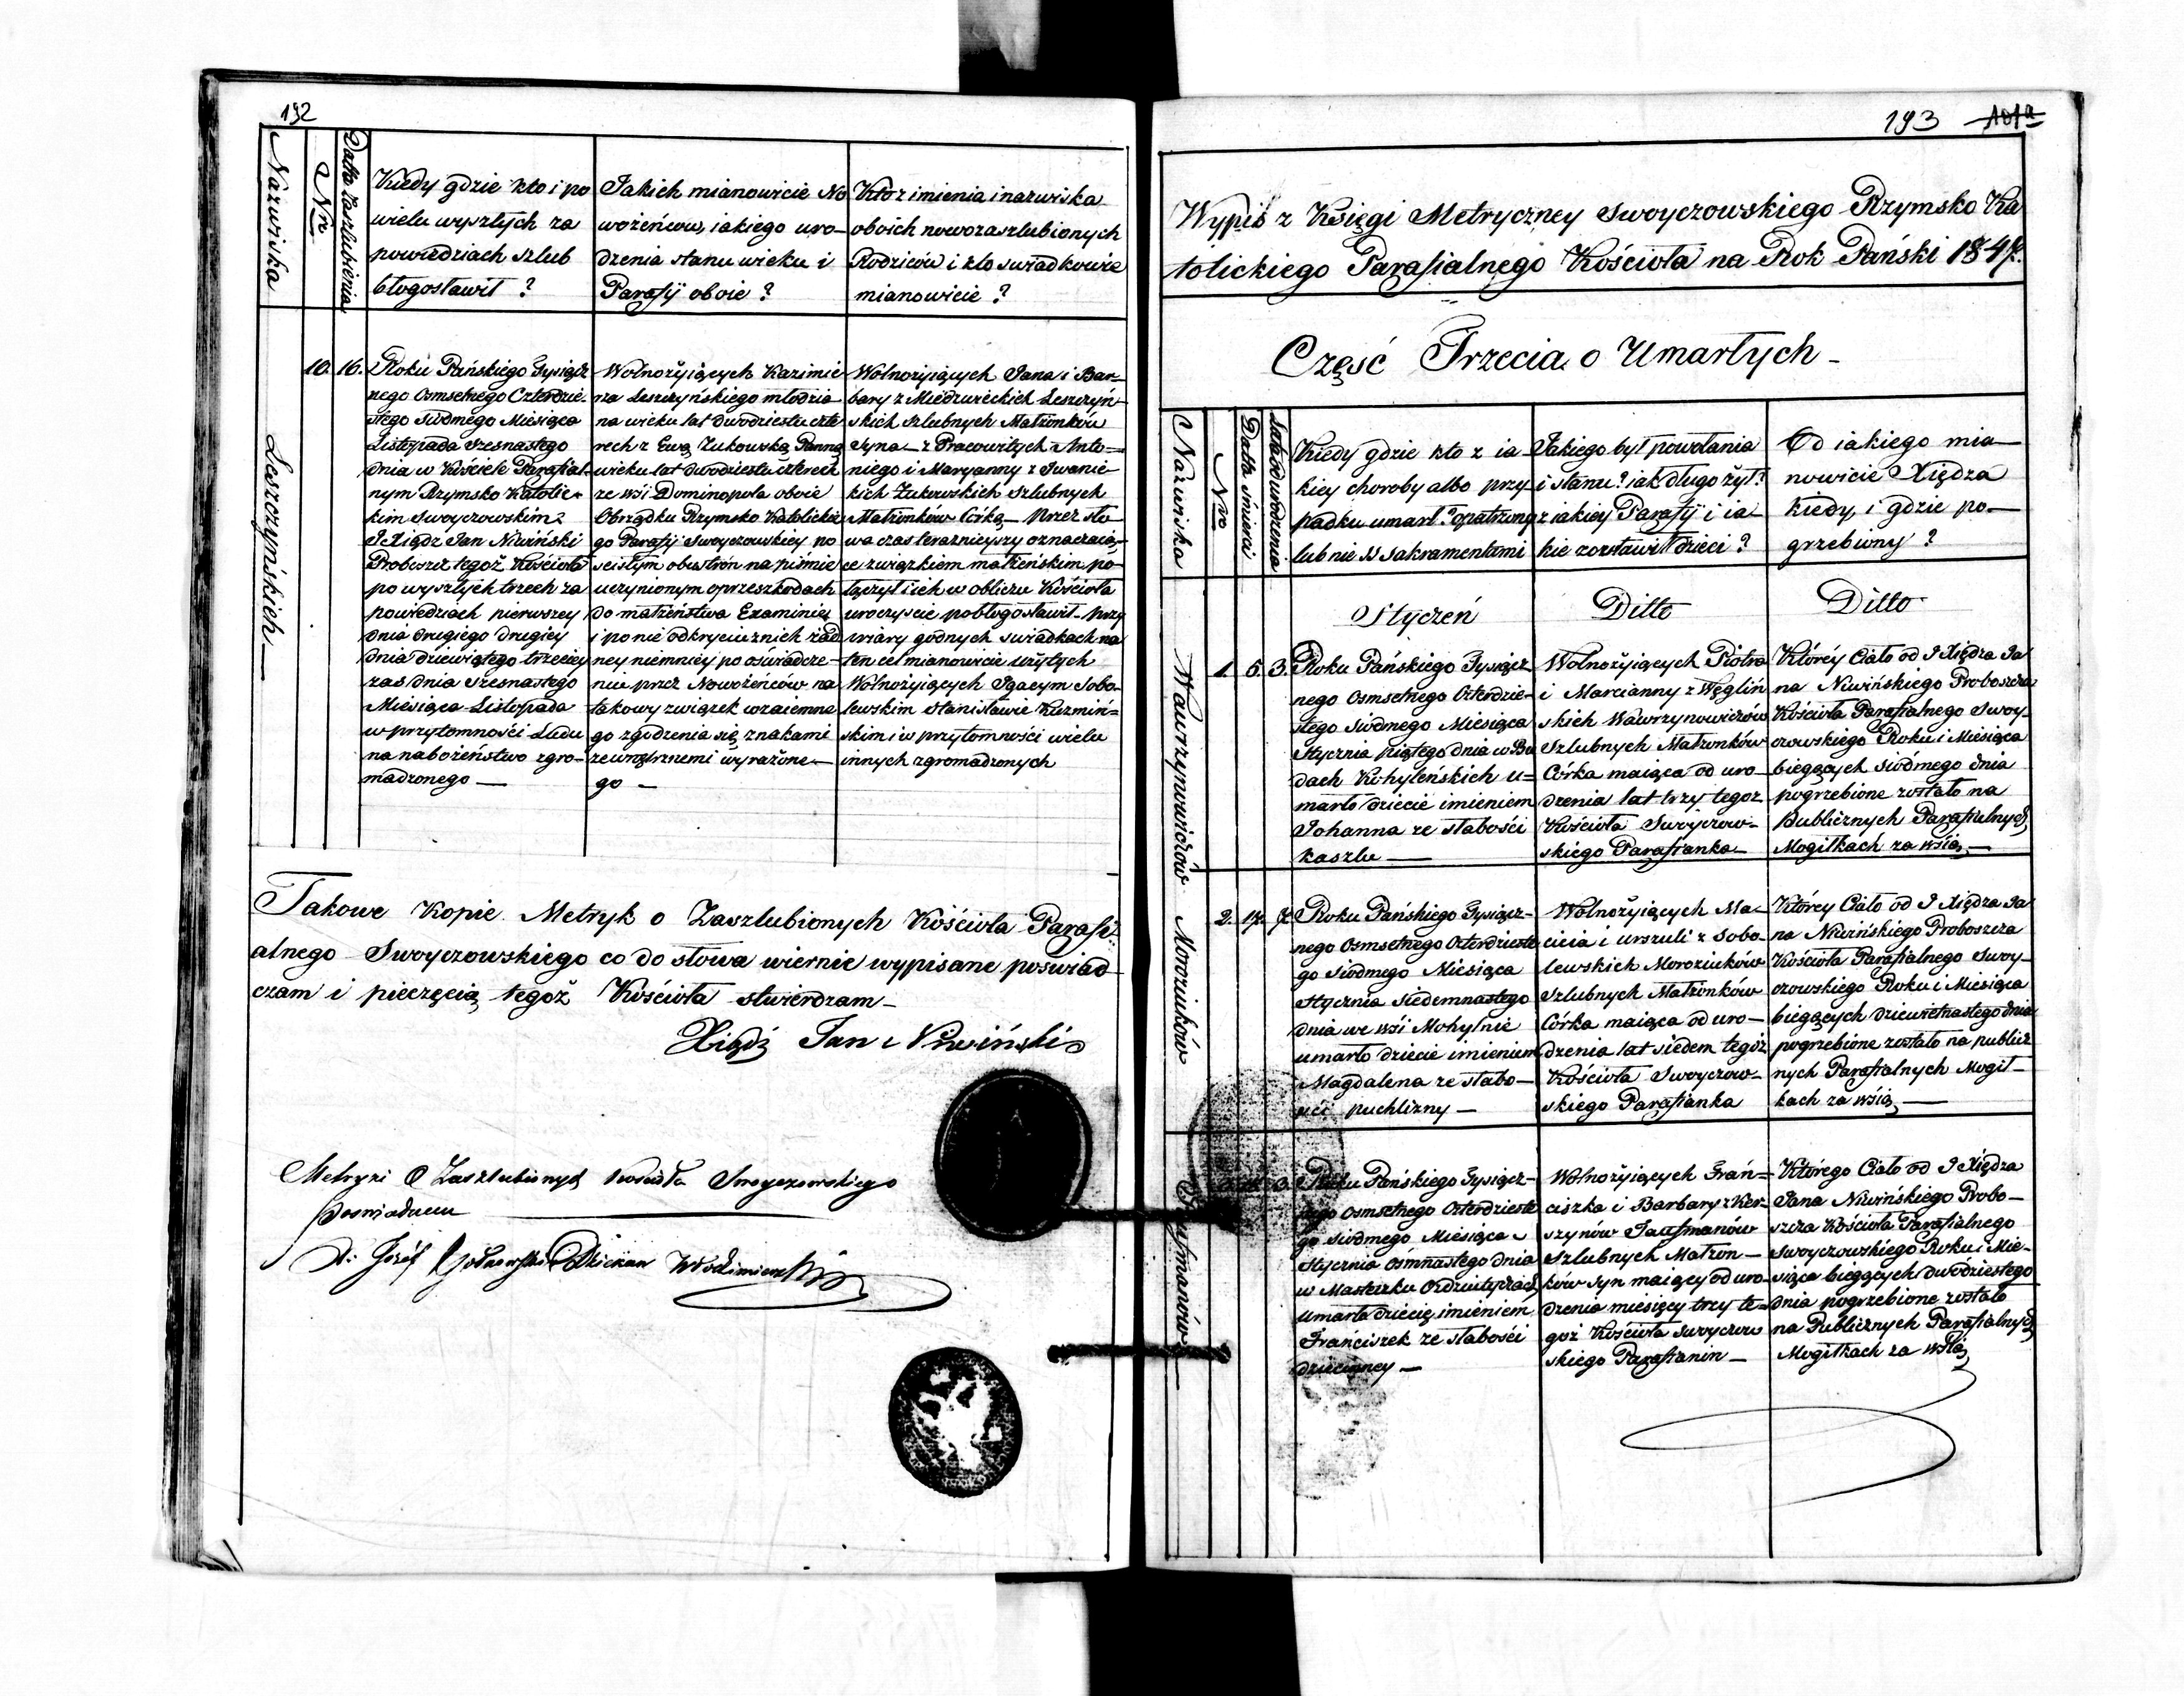 192
Nazwiska
Nro
Datta Zaszlubienia
Kiedy gdzie kto i po
wielu wyszłych za
powiedziach szlub
błogosławił ?
Jakich mianowicie No
wożeńcow, iakiego uro-
dzenia stanu wieku i
Parafij oboie ?
Kto z imienia i nazwiska
oboich nowozaszlubionych
Rodziców i kto swiadkowie
mianowicie ?
Leszczyńskich
10. 16.
Roku Pańskiego Tysiącz
nego Osmsetnego Czterdzie-
stego siódmego Miesiąca
Listopada szesnastego
dnia w Kościele Parafial-
nym Rzymsko Katolic-
kim Swoyczowskim
JXiądz Jan Niwiński
Proboszcz tegoż Kościoła
po wyszłych trzech za
powiedziach pierwszey
dnia drugiego drugiey
dnia dziewiątego trzeciey
zaś dnia szesnastego
Miesiąca Listopada
w przytomności Ludu
na nabożeństwo zgro-
madzonego —
Wolnożyiących Kazimie
rza Leszczyńskiego młodzia
na wieku lat dwódziestu czte
rech z Ewą Żukowską Panną
wieku lat dwódziestu czterech
ze wsi Dominopola oboie
Obrządku Rzymsko Katolickie
go Parafij Swoyczowskiey po
scisłym obustrón na piśmie
uczynionym o przeszkodach
do małżeństwa Examinie
i po nie odkryciu z nich żad
ney niemniey po oświadcze-
niu przez Nowożeńców na
takowy związek wzaiemne
go zgodzenia się znakami
zewnętrznemi wyrażone-
go —
Wolnożyiących Jana i Bar-
bary z Miedzwieckich Leszczyń-
skich szlubnych Małżonków
Syna — z Pracowitych Anto-
niego i Maryanny z Iwanic-
kich Żukowskich szlubnych
Małżonków Córką — przez sło
wa czas teraznieyszy oznaczaią-
ce związkiem małżeńskim po
łączył i ich w obliczu Kościoła
uroczyscie pobłogosławił — przy
wiary godnych swiadkach na
ten cel mianowicie użytych
Wolnożyiących Jgacym Sobo-
lewskim Stanisławie Kuzmiń-
skim i w przytomności wielu
innych zgromadzonych
Takowe Kopie Metryk o Zaszlubionych Kościoła Parafi
alnego Swoyczowskiego co do słowa wiernie wypisane poswiad
czam i pieczęcią tegoż Kościoła stwierdzam —
Xiądz Jan Niwiński
Metryki O Zaszlubionych Kościoła Swoyczowskiego
Poswiadczam
X. Józef Dziekan Włodzimierski
193
Wypis z Księgi Metryczney Swoyczowskiego Rzymsko Ka
tolickiego Parafialnego Kościoła na Rok Pański 1847.
Część Trzecia o Umarłych —
Nazwiska
Nro
Datta śmierci
Lata od urodzenia
Kiedy gdzie kto z ia
kiey choroby albo przy
padku umarł ? opatrzony
lub nie SS Sakramentami
Jakiego był powołania
i stanu ? iak długo żył ?
z iakiey Parafij i ia-
kie zostawił dzieci ?
Od iakiego mia-
nowicie Xiędza
kiedy i gdzie po-
grzebiony ?
Styczeń
Ditto
Ditto
Wawrzynowiczów
1. 5. 3.
Roku Pańskiego Tysiącz
nego Osmsetnego Czterdzie-
stego siódmego Miesiąca
Stycznia piątego dnia w Bu
dach Kohyleńskich u-
marło dziecie imieniem
Johanna ze słabości
kaszlu —
Wolnożyiących Piotra
i Marcianny z Węgliń
skich Wawrzynowiczów
Szlubnych Małżonków
Córka maiąca od uro-
dzenia lat trzy tegoż
Kościoła Swoyczow-
skiego Parafianka —
Któréy Ciało od JXiędza Ja
na Niwińskiego Proboszcza
Kościoła Parafialnego Swoy-
czowskiego Roku i Miesiąca
bieżących siódmego dnia
pogrzebione zostało na
Publicznych Parafialnych
Mogiłkach za wsią —
Moroziuków
2. 17. 7.
Roku Pańskiego Tysiącz-
nego Osmsetnego Czterdzieste
go siódmego Miesiąca
Stycznia siedemnastego
dnia we wsi Mohylnie
umarło dziecie imieniem
Magdalena ze słabo-
ści puchlizny —
Wolnożyiących Ma-
cieia i Urszuli z Sobo-
lewskich Moroziuków
Szlubnych Małżonków
Córka maiąca od uro-
dzenia lat siedem tegoż
Kościoła Swoyczow-
skiego Parafianka
Którey Ciało od JXiędza Ja
na Niwińskiego Proboszcza
Kościoła Parafialnego Swoy-
czowskiego Roku i Miesiąca
bieżących dziewietnastego dnia
pogrzebione zostało na publicz
nych Parafialnych Mogił-
kach za wsią —
3.
Roku Pańskiego Tysiącz-
nego Osmsetnego Czterdzieste
go siódmego Miesiąca
Stycznia ósmnastego dnia
w Masteczku Ozdziutyczach
Umarło dziecię imieniem
Franciszek ze słabości
dziecinney —
Wolnożyiących Fran-
ciszka i Barbary z Ker-
szynów Taufmanów
Szlubnych Małżon-
ków syn maiący od uro-
dzenia miesięcy trzy te-
goż Kościoła Swoyczow
skiego Parafianin —
Którego Ciało od JXiędza
Jana Niwińskiego Probo-
szcza Kościoła Parafialnego
Swoyczowskiego Roku i Mie-
siąca bieżących dwódziestego
dnia pogrzebione zostało
na Publicznych Parafialnych
Mogiłkach za wsią